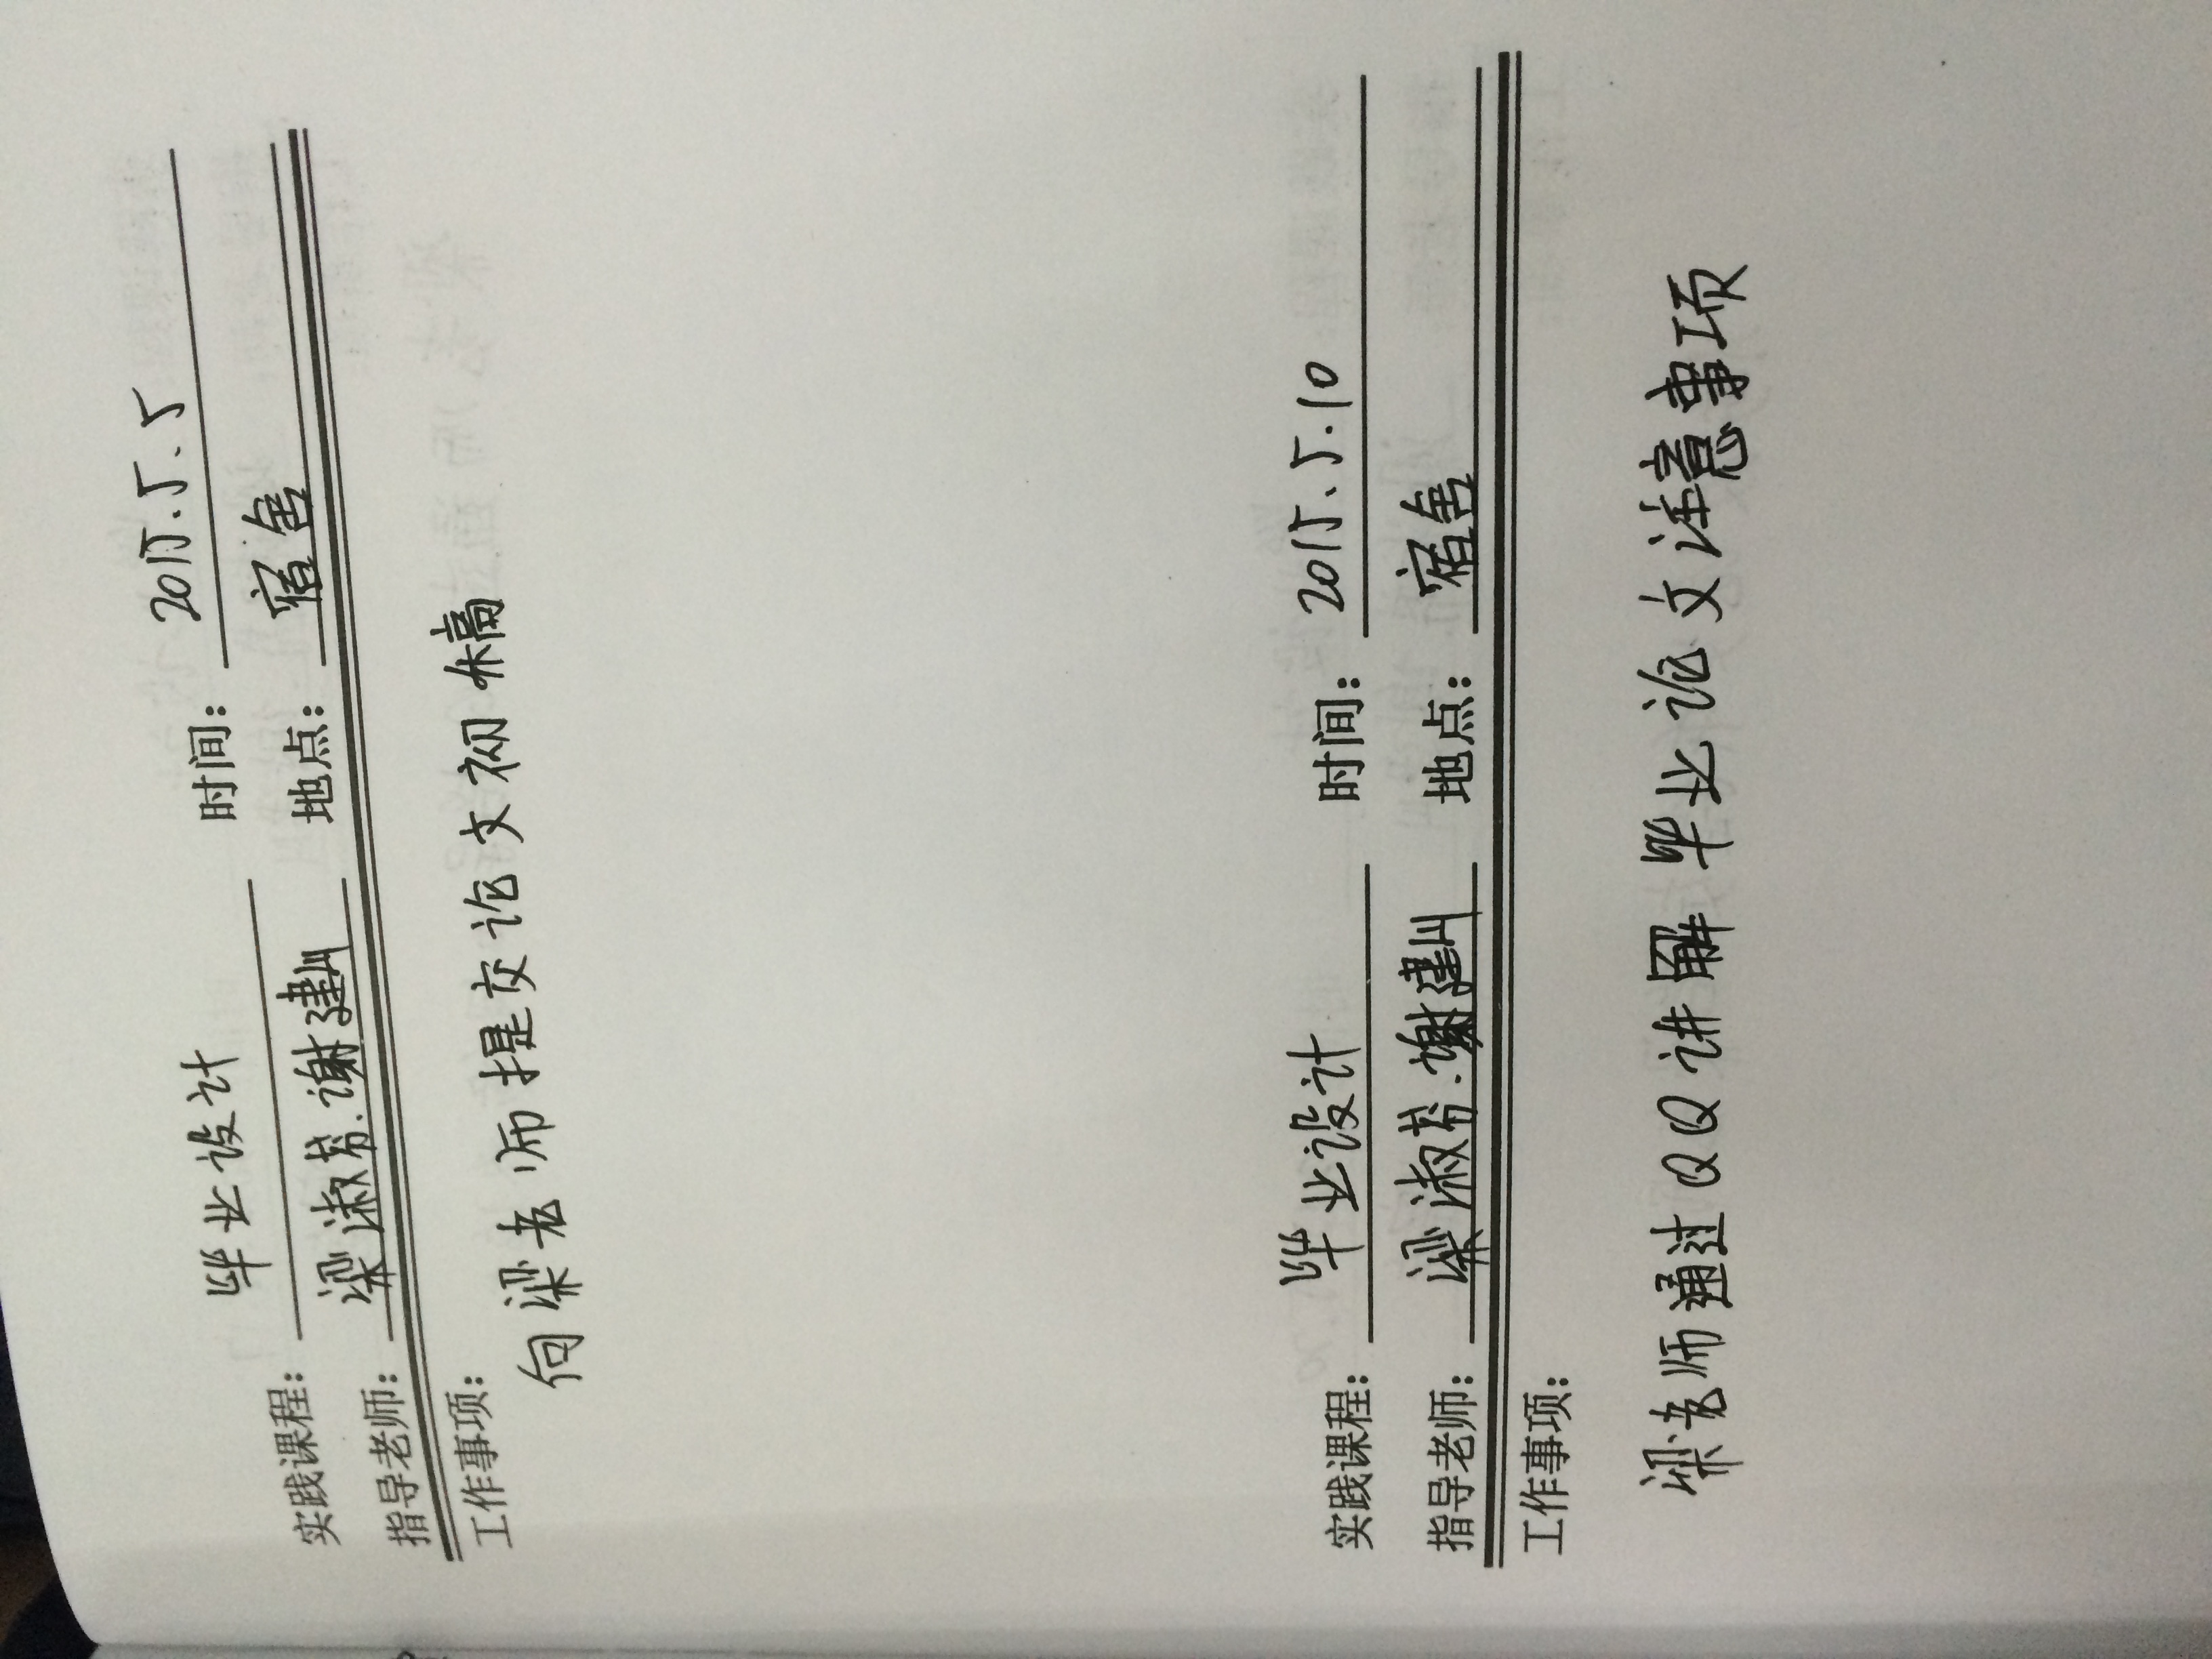 实践课程: 毕业设计 时间: 2015.5.5
指导老师: 梁淑芬.谢建川 地点: 宿舍
工作事项:
向梁老师提交论文初稿
实践课程: 毕业设计 时间: 2015.5.10
指导老师: 梁淑芬.谢建川 地点: 宿舍
工作事项:
梁老师通过QQ讲解毕业论文注意事项